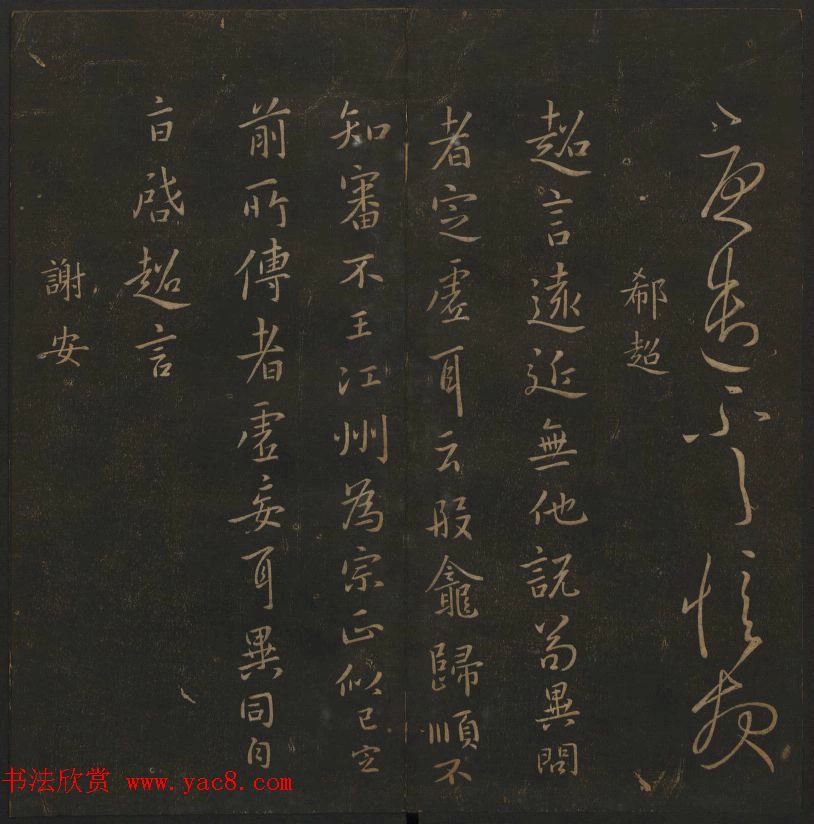 不
郗超
超言遠近無他說異問
者定虛耳云殷龕歸順不
知審不王江州為宗正似已定
前所傳者虛妄耳異同
啓超言
謝安
书法欣赏 www.yac8.com